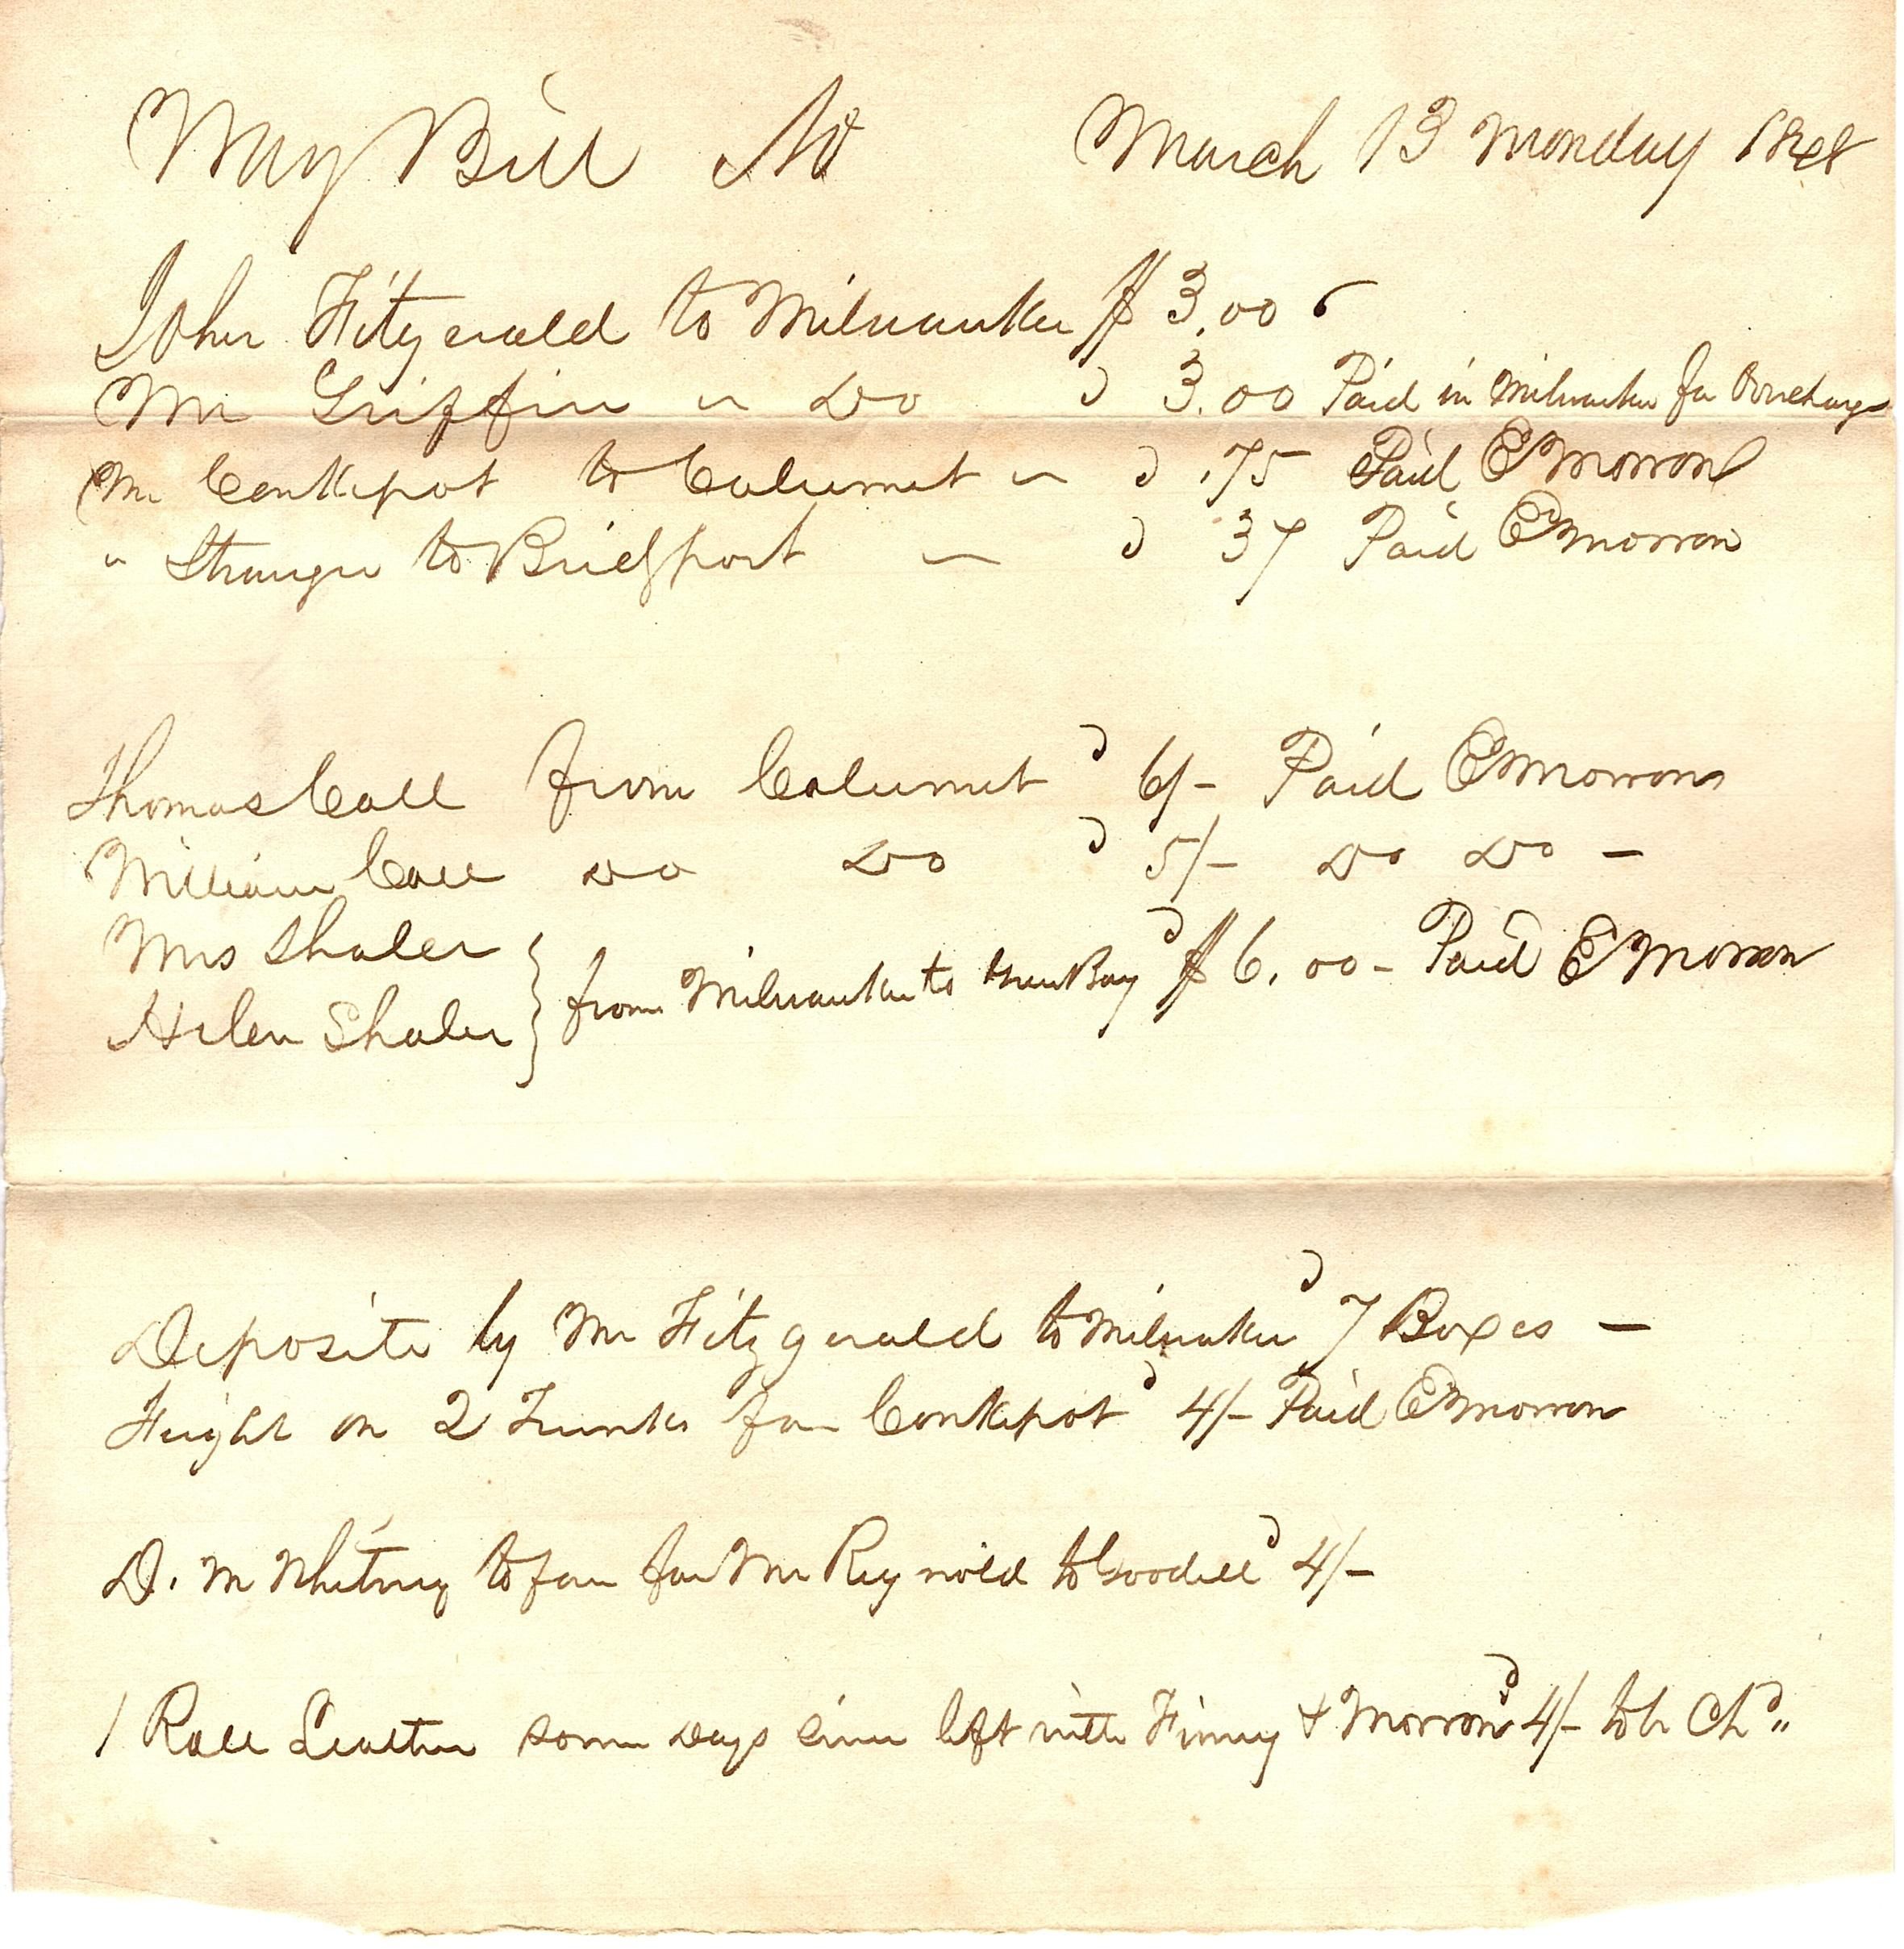 Way Bill No March 13 Monday 1848
John Fitzgerald to Milwaukee $ 3.00
Mr Griffin " Do 3.00 Paid in Milwaukee for
Mr Conkepot to Calumet " .75 Paid E Morrow
" Stranger to Bridfport " 37 Paid E Morrow
Thomas Call from Calumet 6/- Paid E Morrow
William Call Do Do 5/- Do Do -
Mrs Shaler
} from Milwaukee to Green Bay $ 6.00 - Paid E Morrow
Helen Shaler
Deposite by Mr Fitzgerald to Milwaukee 7 Boxes -
Freight on 2 Trunks for Conkepot 4/- Paid E Morrow
D. M Whitney to fare for Mr Reynold to Goodell 4/-
1 Roll Leather some days since left with Finney & Morrow 4/- to be Chd "